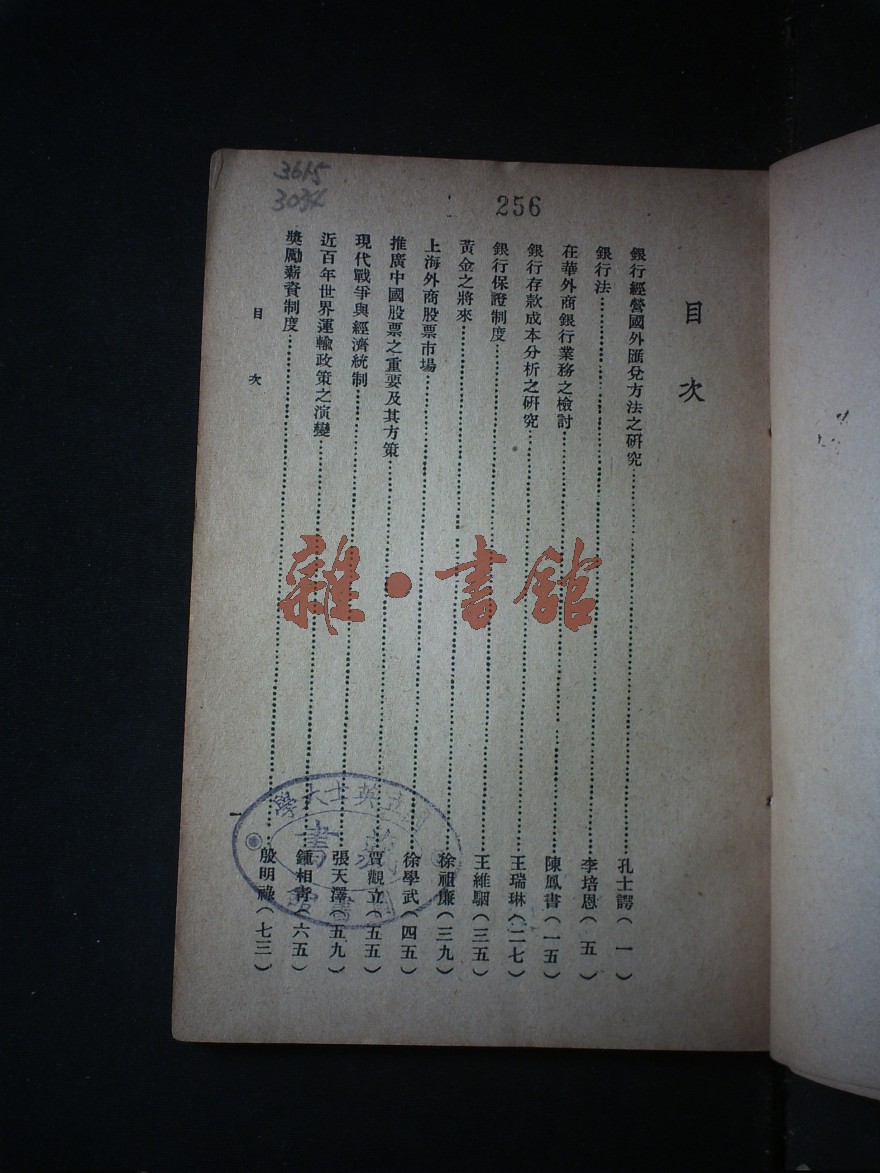 3615
3034
256
目次
銀行經營國外匯兌方法之研究⋯⋯孔士諤(一)
銀行法⋯⋯李培恩(五)
在華外商銀行業務之檢討⋯⋯陳鳳書(一五)
銀行存款成本分析之研究⋯⋯王瑞琳(二七)
銀行保證制度⋯⋯王維駰(三五)
黃金之將來⋯⋯徐祖廉(三九)
上海外商股票市場⋯⋯徐學武(四五)
推廣中國股票之重要及其方策⋯⋯賈觀立(五五)
現代戰爭與經濟統制⋯⋯張天澤(五九)
近百年世界運輸政策之演變⋯⋯鍾相青(六五)
獎勵薪資制度⋯⋯殷明祿(七三)
目次
一
雜·書館
立英士大學
藏書
圖書館